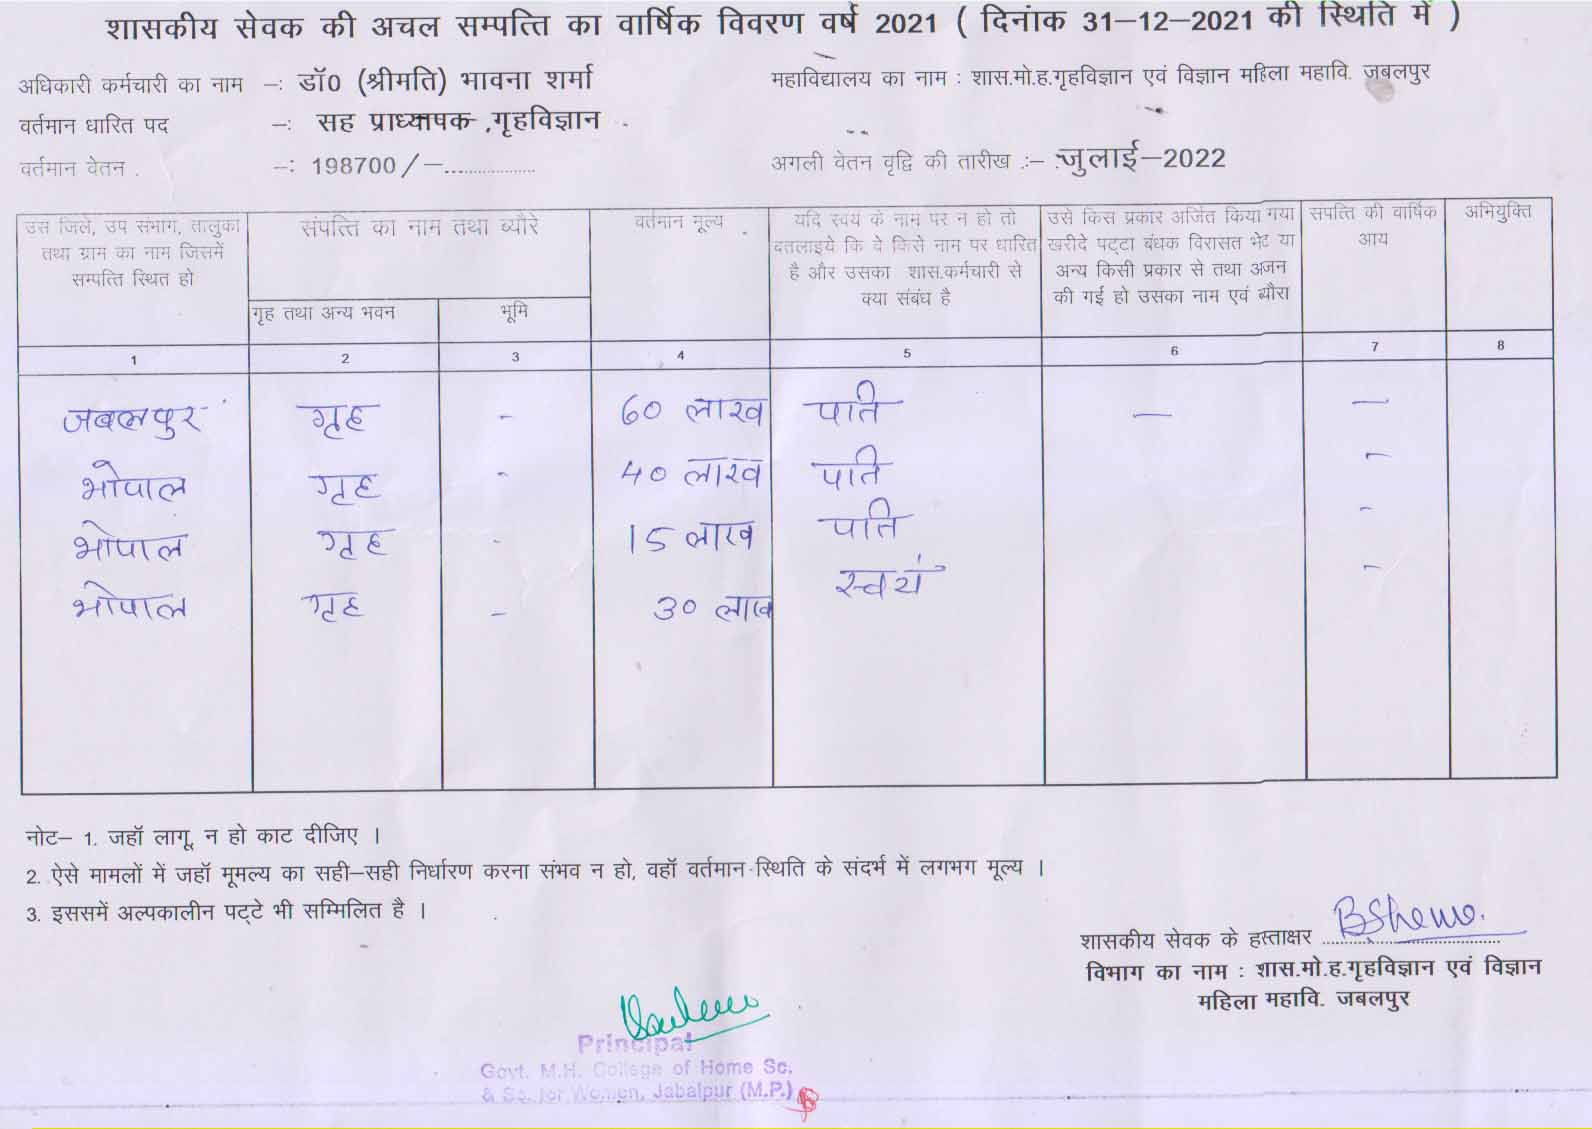 शासकीय सेवक की अचल सम्पत्ति का वार्षिक विवरण वर्ष 2021 ( दिनांक 31–12–2021 की स्थिति में )
अधिकारी कर्मचारी का नाम –: डॉ0 (श्रीमति) भावना शर्मा
महाविद्यालय का नाम : शास.मो.ह.गृहविज्ञान एवं विज्ञान महिला महावि. जबलपुर
वर्तमान धारित पद –: सह प्राध्यापक ,गृहविज्ञान
वर्तमान वेतन . –: 198700/–..................
अगली वेतन वृद्वि की तारीख :– :जुलाई–2022
उस जिले, उप संभाग, तालुका
तथा ग्राम का नाम जिसमें
सम्पत्ति स्थित हो
संपत्ति का नाम तथा ब्यौरे
गृह तथा अन्य भवन
भूमि
वर्तमान मूल्य
यदि स्वयं के नाम पर न हो तो
बतलाइये कि वे किसे नाम पर धारित
है और उसका शास.कर्मचारी से
क्या संबंध है
उसे किस प्रकार अर्जित किया गया
खरीदे पट्टा बंधक विरासत भेट या
अन्य किसी प्रकार से तथा अजन
की गई हो उसका नाम एवं ब्यौरा
संपत्ति की वार्षिक
आय
अभियुक्ति
1 2 3 4 5 6 7 8
जबलपुर गृह - 60 लाख पति — —
भोपाल गृह - 40 लाख पति -
भोपाल गृह - 15 लाख पति -
भोपाल गृह - 30 लाख स्वयं -
नोट– 1. जहॉ लागू, न हो काट दीजिए ।
2. ऐसे मामलों में जहॉ मूमल्य का सही–सही निर्धारण करना संभव न हो, वहॉ वर्तमान स्थिति के संदर्भ में लगभग मूल्य ।
3. इससमें अल्पकालीन पट्टे भी सम्मिलित है ।
शासकीय सेवक के हस्ताक्षर ..............................
विभाग का नाम : शास.मो.ह.गृहविज्ञान एवं विज्ञान
महिला महावि. जबलपुर
Principal
Govt. M.H. College of Home Sc.
& Sc. for Women, Jabalpur (M.P.)